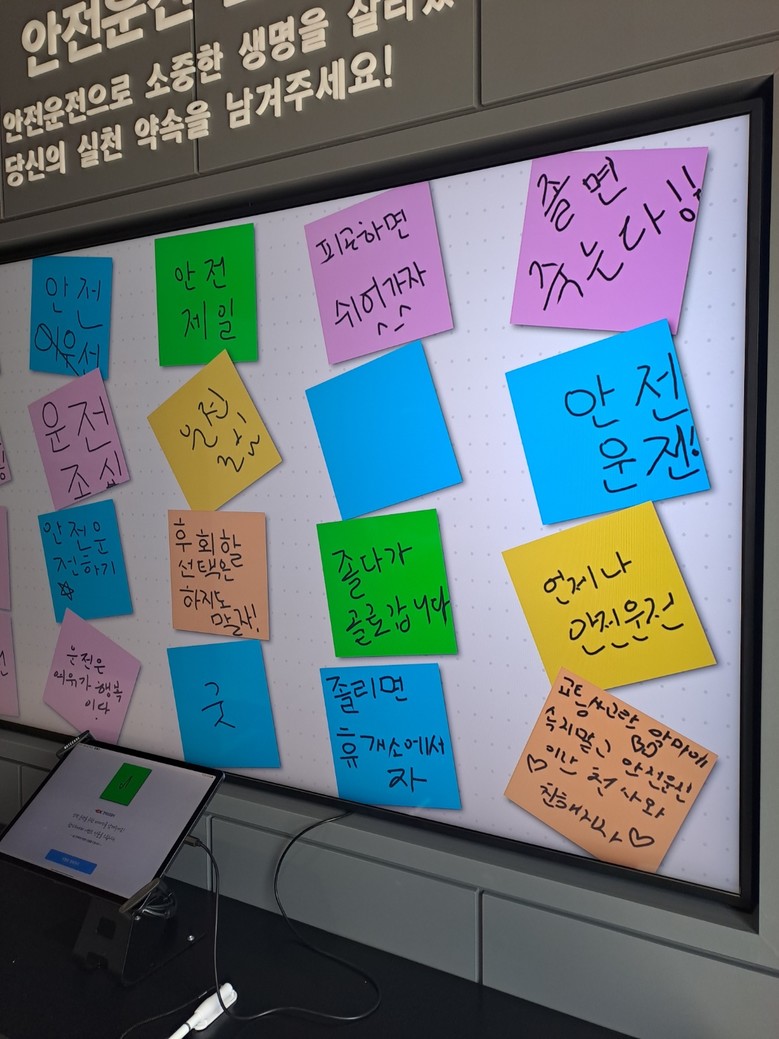 안전운전
안전운전으로 소중한 생명을 살리
당신의 실천 약속을 남겨주세요!
안전
제일
피곤하면
쉬어가자
^ ^
졸면
죽는다!!
안전
운전
조심
안전
운전!
안전운
전하기
☆
후회할
선택은
하지도
말자!
졸다가
골로갑니다
언제나
안전운전
운전은
여유가 행복
이다
굿
졸리면
휴게소에서
자
교통사고란 악마에게
속지말고 안전운전
이란 천사와
친해지자 ♡